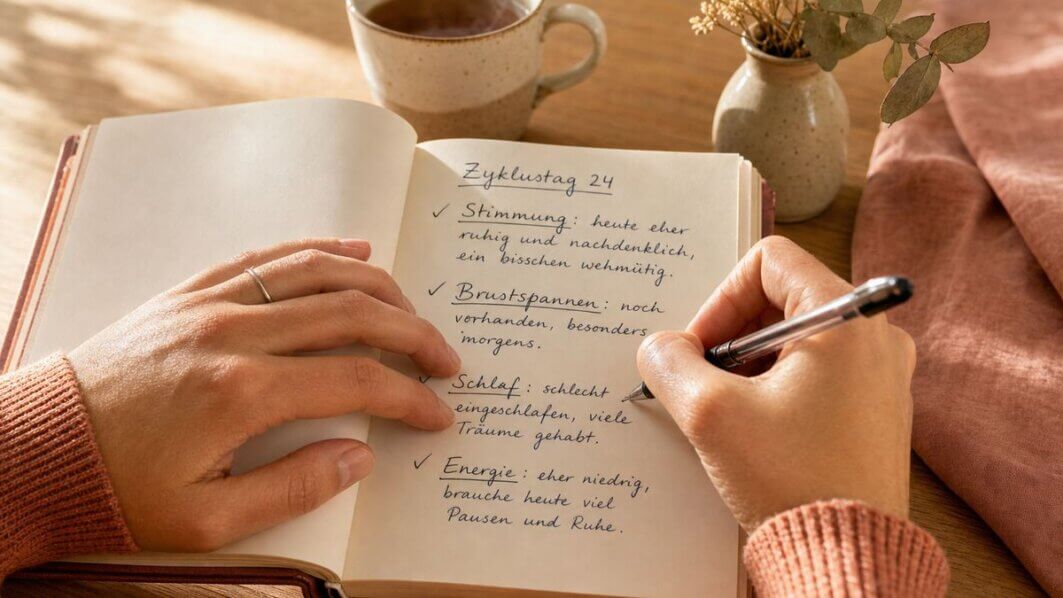 Zyklustag 24
✓ Stimmung: heute eher
ruhig und nachdenklich,
ein bisschen wehmütig.
✓ Brustspannen: noch
vorhanden, besonders
morgens.
✓ Schlaf: schlecht
eingeschlafen, viele
Träume gehabt.
✓ Energie: eher niedrig,
brauche heute viel
Pausen und Ruhe.